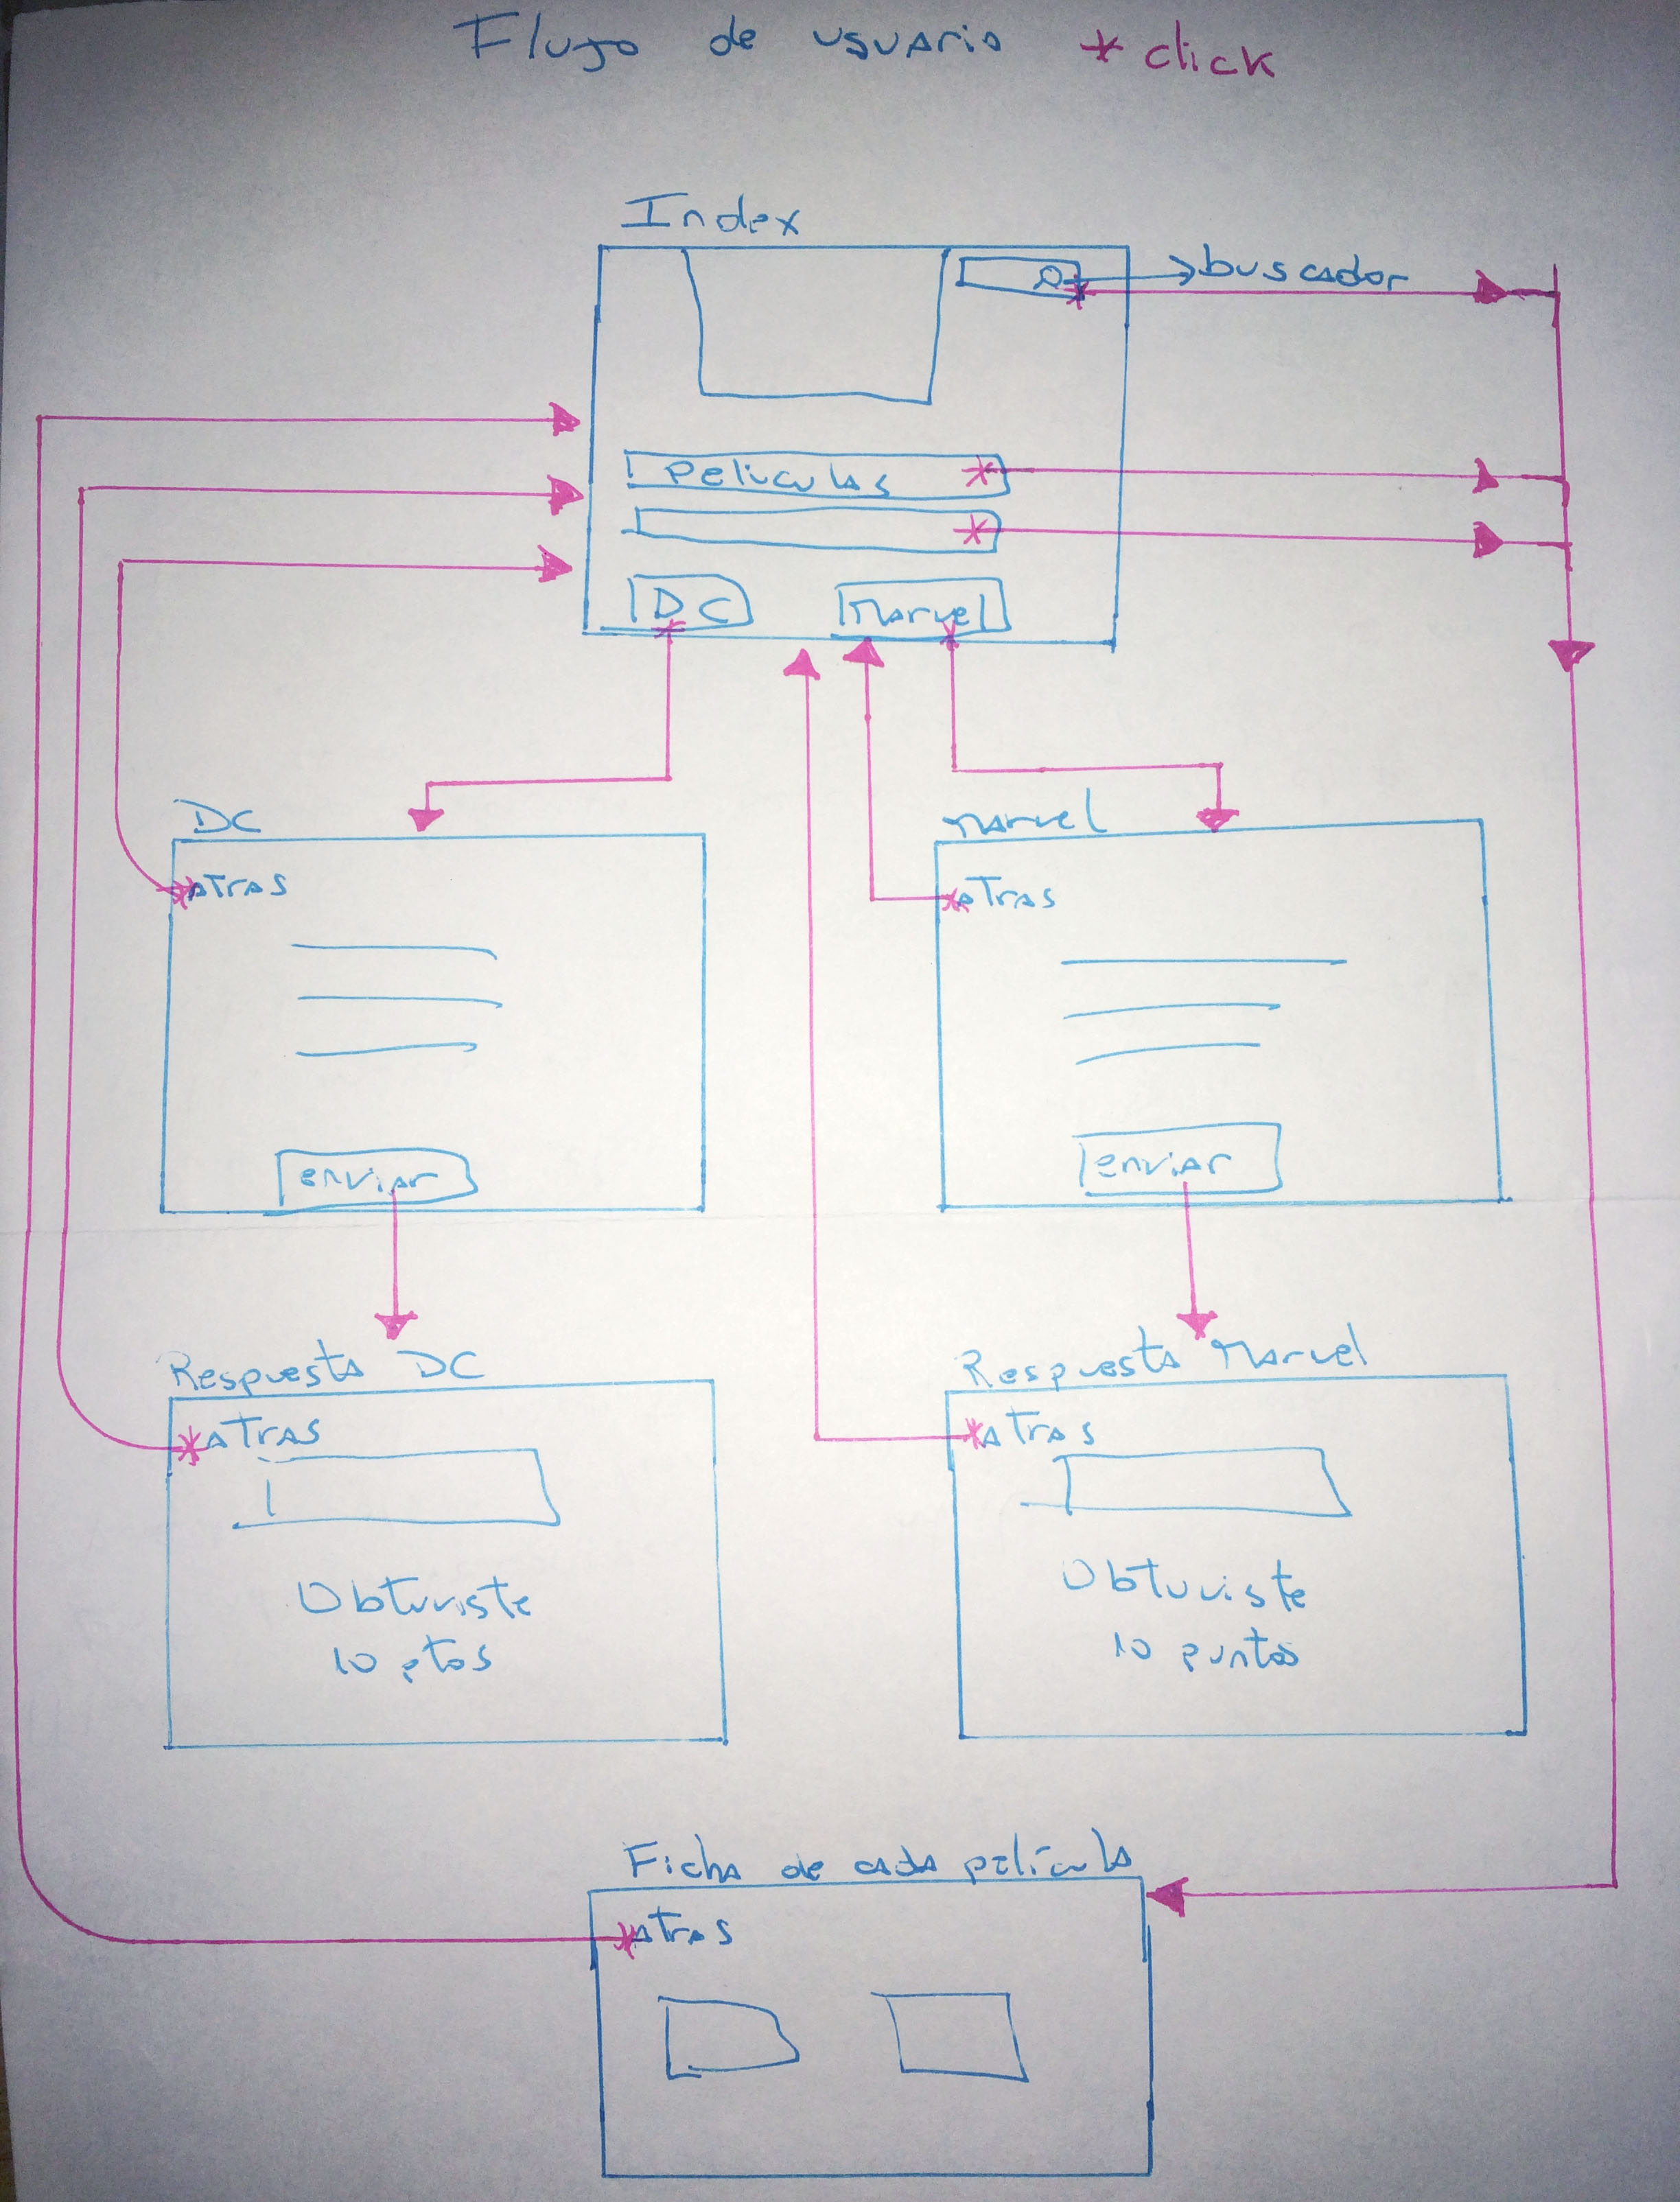 Flujo de usuario * click
Index
buscador
Peliculas
DC Marvel
DC
atras
enviar
Marvel
atras
enviar
Respuesta DC
atras
Obtuviste
10 ptos
Respuesta Marvel
atras
Obtuviste
10 puntos
Ficha de cada película
atras